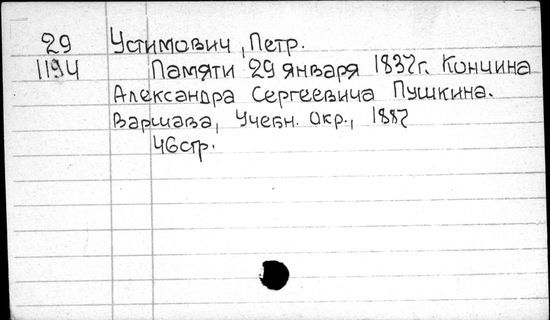 29 Устимович, Петр.
1194 Памяти 29 января 1837г. Кончина
Александра Сергеевича Пушкина.
Варшава, Учебн. Окр., 1887
46стр.